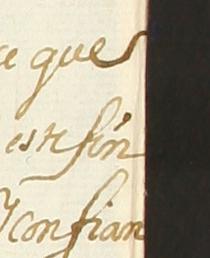 que
est fin
confian